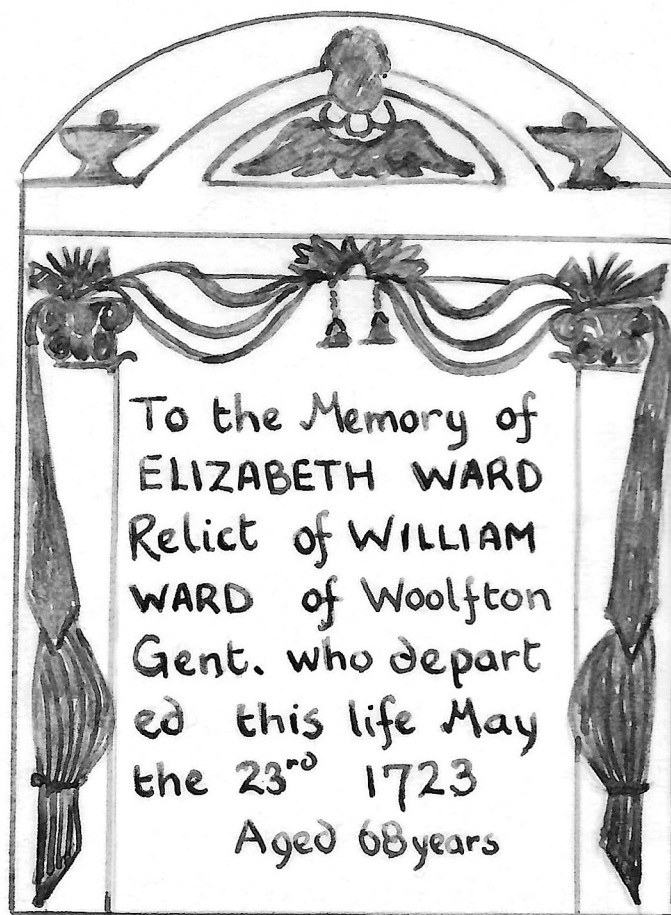 To the Memory of
ELIZABETH WARD
Relict of WILLIAM
WARD of Woolfton
Gent. who depart
ed this life May
the 23rd 1723
Aged 68 years